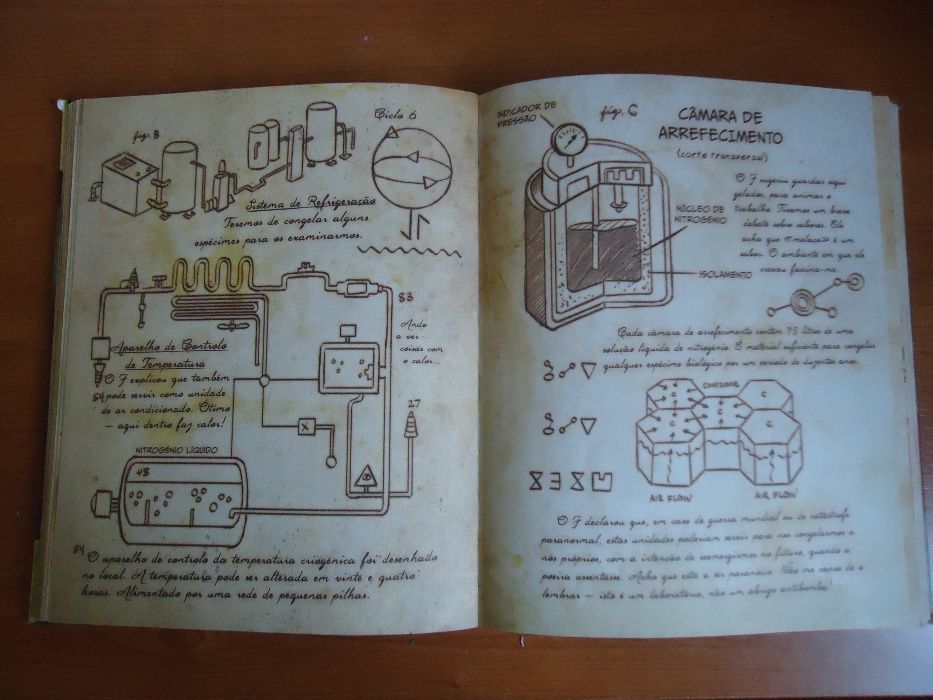 fig. B
Ciclo 6
Sistema de Refrigeração
Teremos de congelar alguns
espécimes para os examinarmos.
83
Ando
a ver
coisas com
o calor...
Aparelho de Controlo
de Temperatura
O F explicou que também
pode servir como unidade
de ar condicionado. Ótimo
— aqui dentro faz calor!
54
27
X
NITROGÉNIO LÍQUIDO
48
54
O aparelho de controlo da temperatura criogénica foi desenhado
no local. A temperatura pode ser alterada em vinte e quatro
horas. Alimentado por uma rede de pequenas pilhas.
INDICADOR DE
PRESSÃO
fig. C
CÂMARA DE
ARREFECIMENTO
(corte transversal)
O F sugeriu guardar aqui
gelados, para animar o
trabalho. Tivemos um breve
debate sobre sabores. Ele
acha que «melaço» é um
sabor. O ambiente em que ele
cresceu fascina-me.
NÚCLEO DE
NITROGÉNIO
ISOLAMENTO
Cada câmara de arrefecimento contém 75 litros de uma
solução líquida de nitrogénio. É material suficiente para congelar
qualquer espécime biológico por um período de duzentos anos.
C
C
C
C
AIR FLOW
AIR FLOW
O F declarou que, em caso de guerra mundial ou de catástrofe
paranormal, estas unidades poderiam servir para nos congelarmos a
nós próprios, com a intenção de reemergirmos no futuro, quando a
poeira assentasse. Acho que está a ser paranoico. Não me canso de o
lembrar — isto é um laboratório, não um abrigo antibomba!